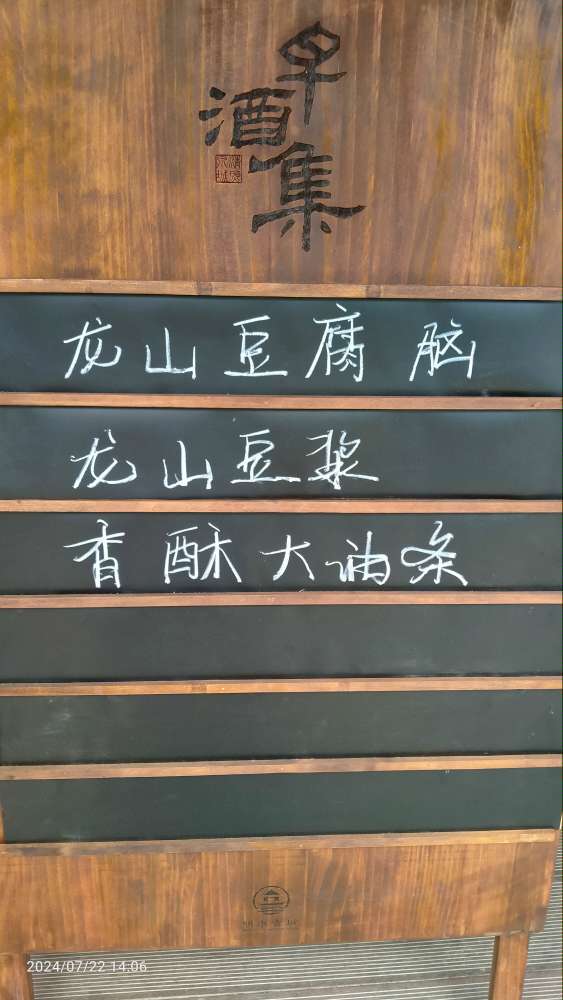 早酒集
龙山豆腐脑
龙山豆浆
香酥大油条
2024/07/22 14:06